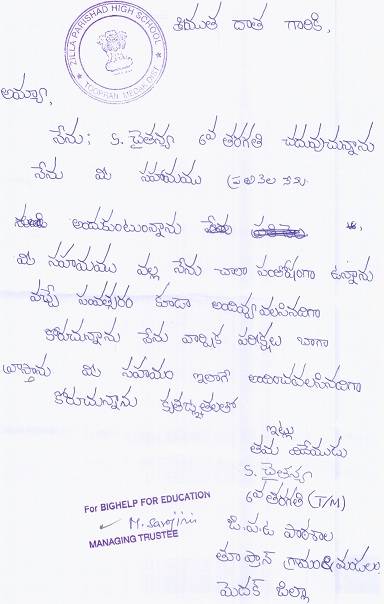 ZILLA PARISHAD HIGH SCHOOL
TOOPRAN. MEDAK DIST
శ్రీయుత దాత గారికి,
అయ్యా,
నేను; S. చైతన్య 6వ తరగతి చదువుచున్నాను
నేను మీ సహాయము
అందుకుంటున్నాను
మీ సహాయము వల్ల నేను చాలా సంతోషంగా ఉన్నాను
వచ్చే సంవత్సరం కూడా అందివ్వవలసినదిగా
కోరుచున్నాను నేను వార్షిక పరీక్షలు బాగా
వ్రాస్తాను మీ సహాయం ఇలాగే అందించవలసినదిగా
కోరుచున్నాను కృతజ్ఞతలతో
ఇట్లు
తమ విధేయుడు
S. చైతన్య
6వ తరగతి (T/M)
జి.ప.ఉ పాఠశాల
తూప్రాన్ గ్రామం & మండలం
మెదక్ జిల్లా
For BIGHELP FOR EDUCATION
M. Sarojini
MANAGING TRUSTEE